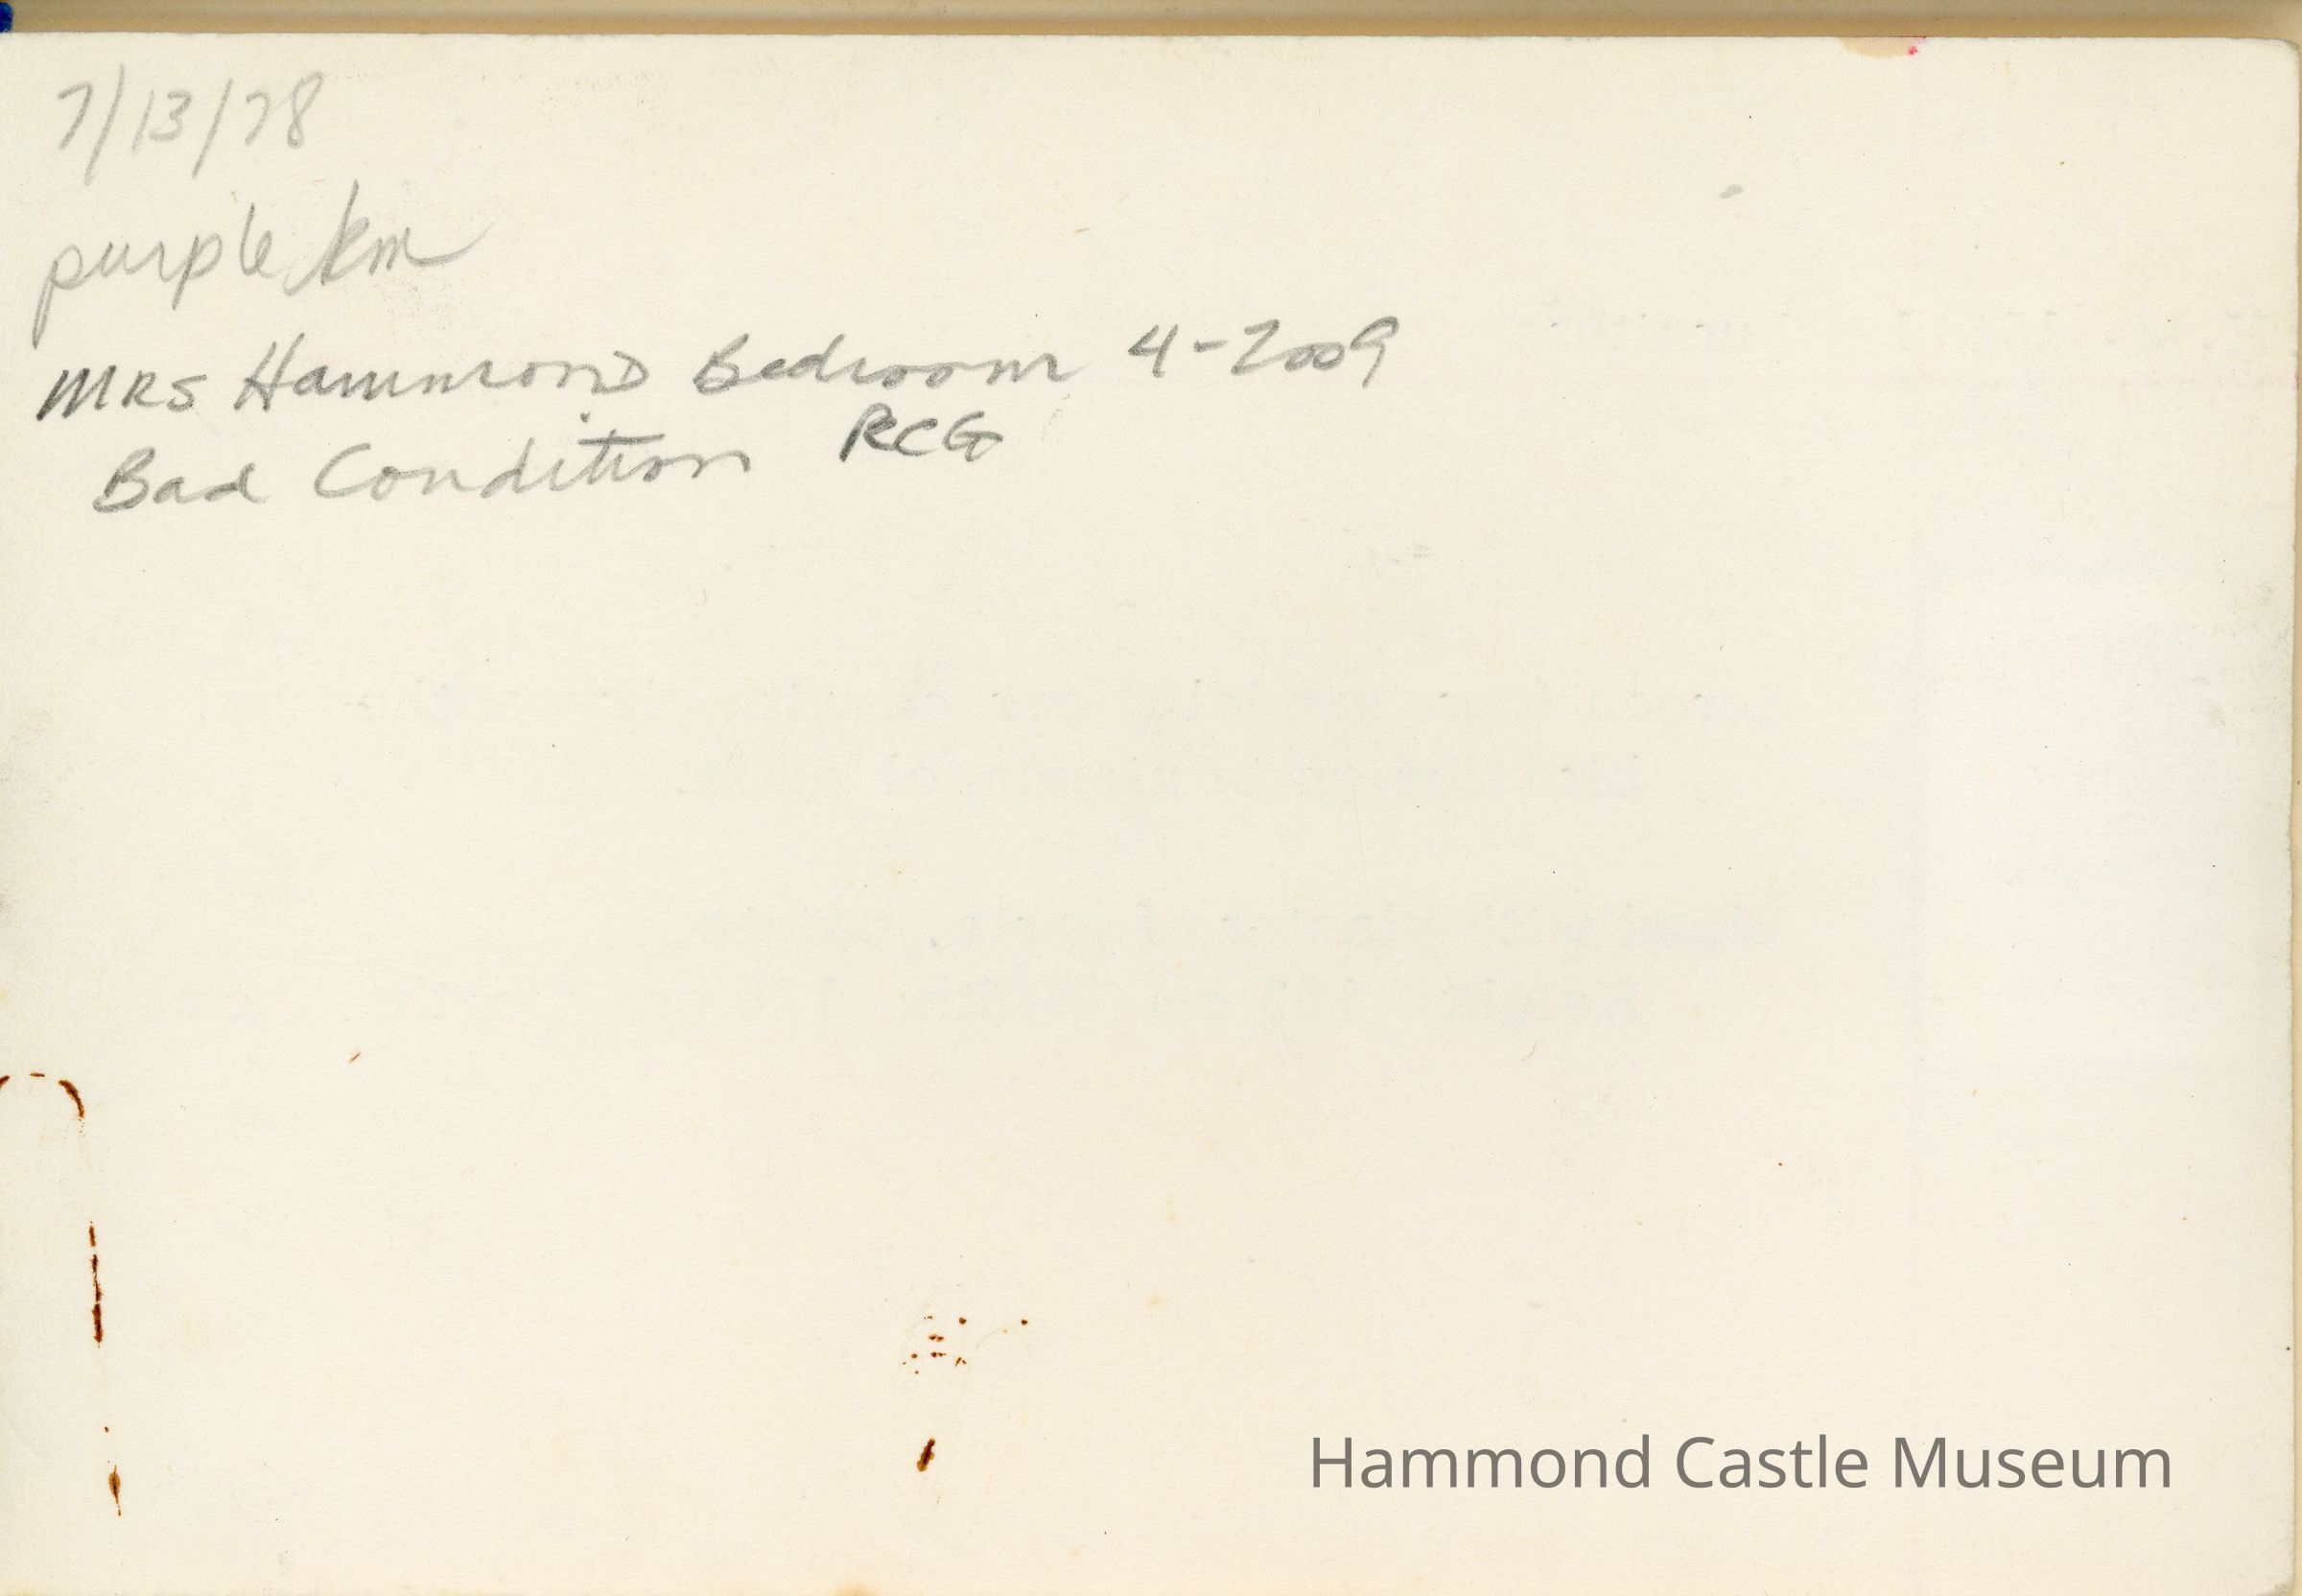 7/13/78
purple rm
MRS Hammond Bedroom 4-2009
Bad Condition RCG
Hammond Castle Museum